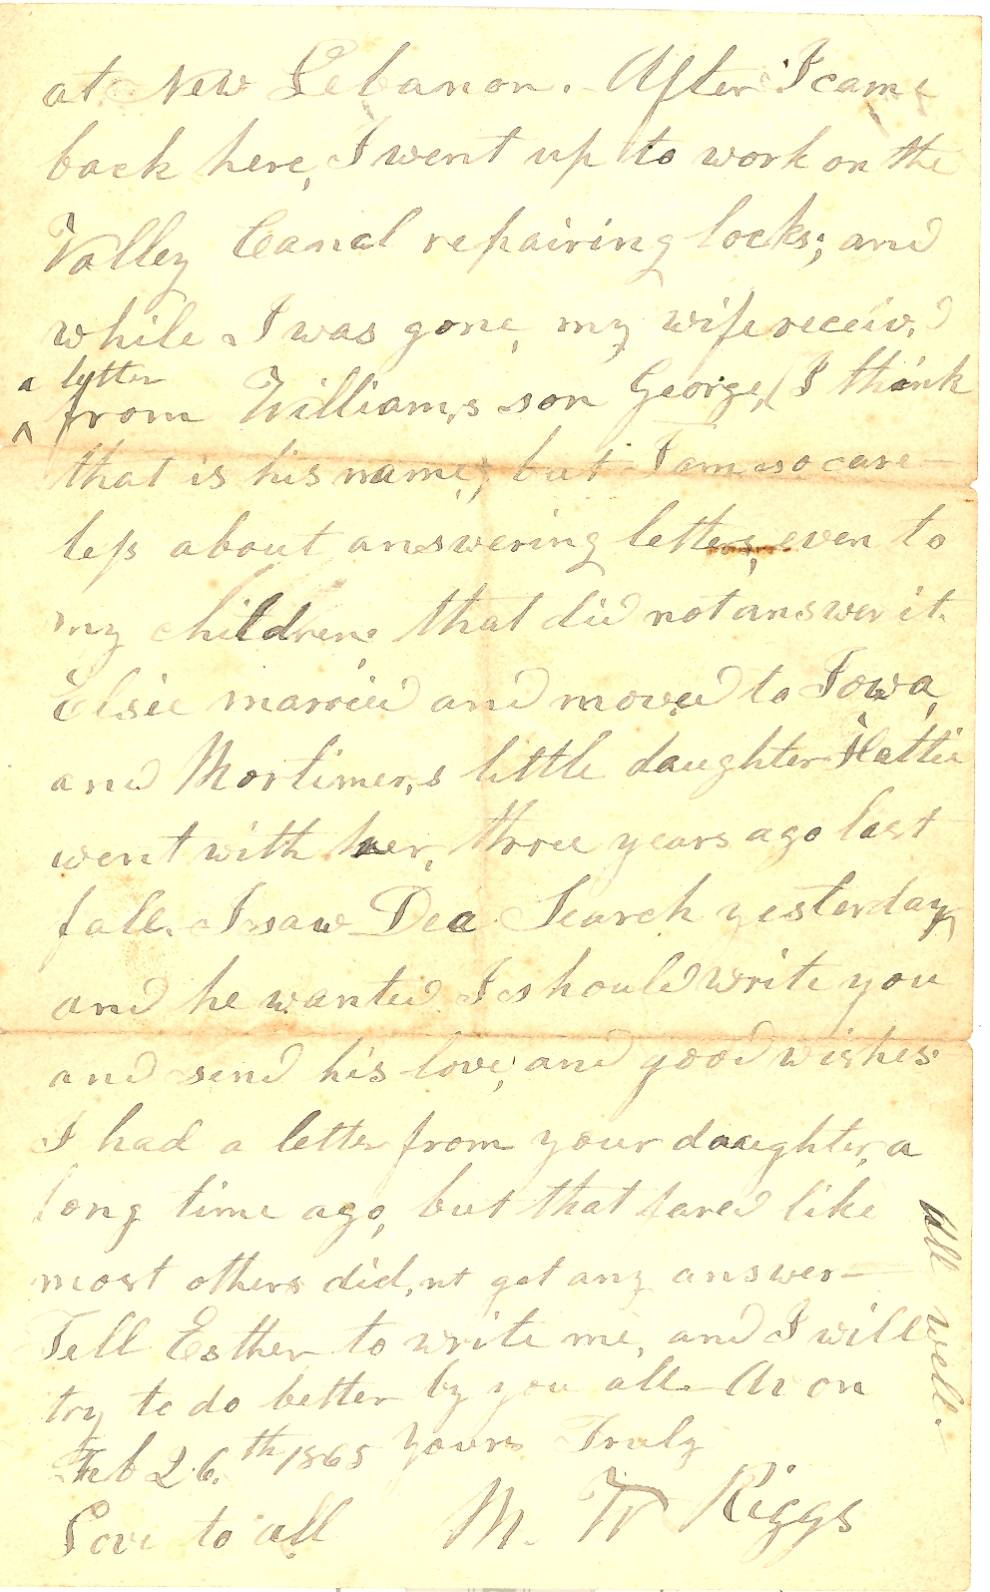 at New Lebanon. After I came
back here, I went up to work on the
Valley Canal repairing locks; and
while I was gone, my wife receiv,d
a letter
^ from William,s son George, (I think
that is his name; but I am so care-
less about answering letters, even to
my children that did not answer it.
Elsie married and moved to Iowa,
and Mortimer,s little daughter Hattie
went with her, three years ago last
fall. I saw Dea Search yesterday
and he wanted I should write you
and send his love; and good wishes.
I had a letter from your daughter, a
long time ago, but that fared like
most others did,nt get any answer—
Tell Esther to write me, and I will
try to do better by you all.
Feb 26.th 1865 Yours Truly
Love to all M. W Riggs
all well.